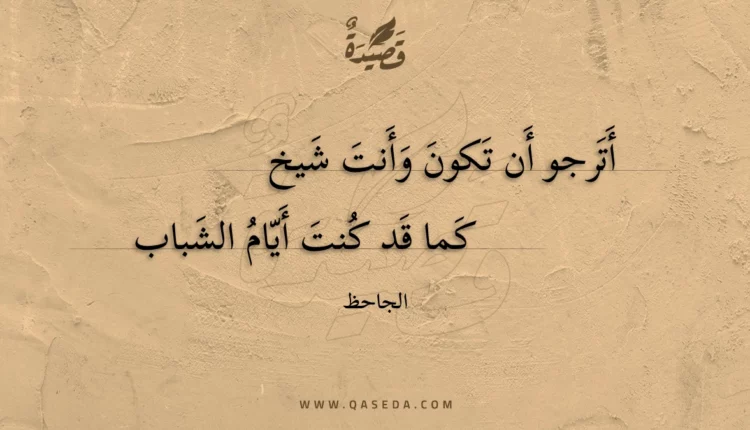 قَصِيدَةٌ
أَتَرجو أَن تَكونَ وَأَنتَ شَيخ
كَما قَد كُنتَ أَيّامُ الشَباب
الجاحظ
WWW.QASEDA.COM